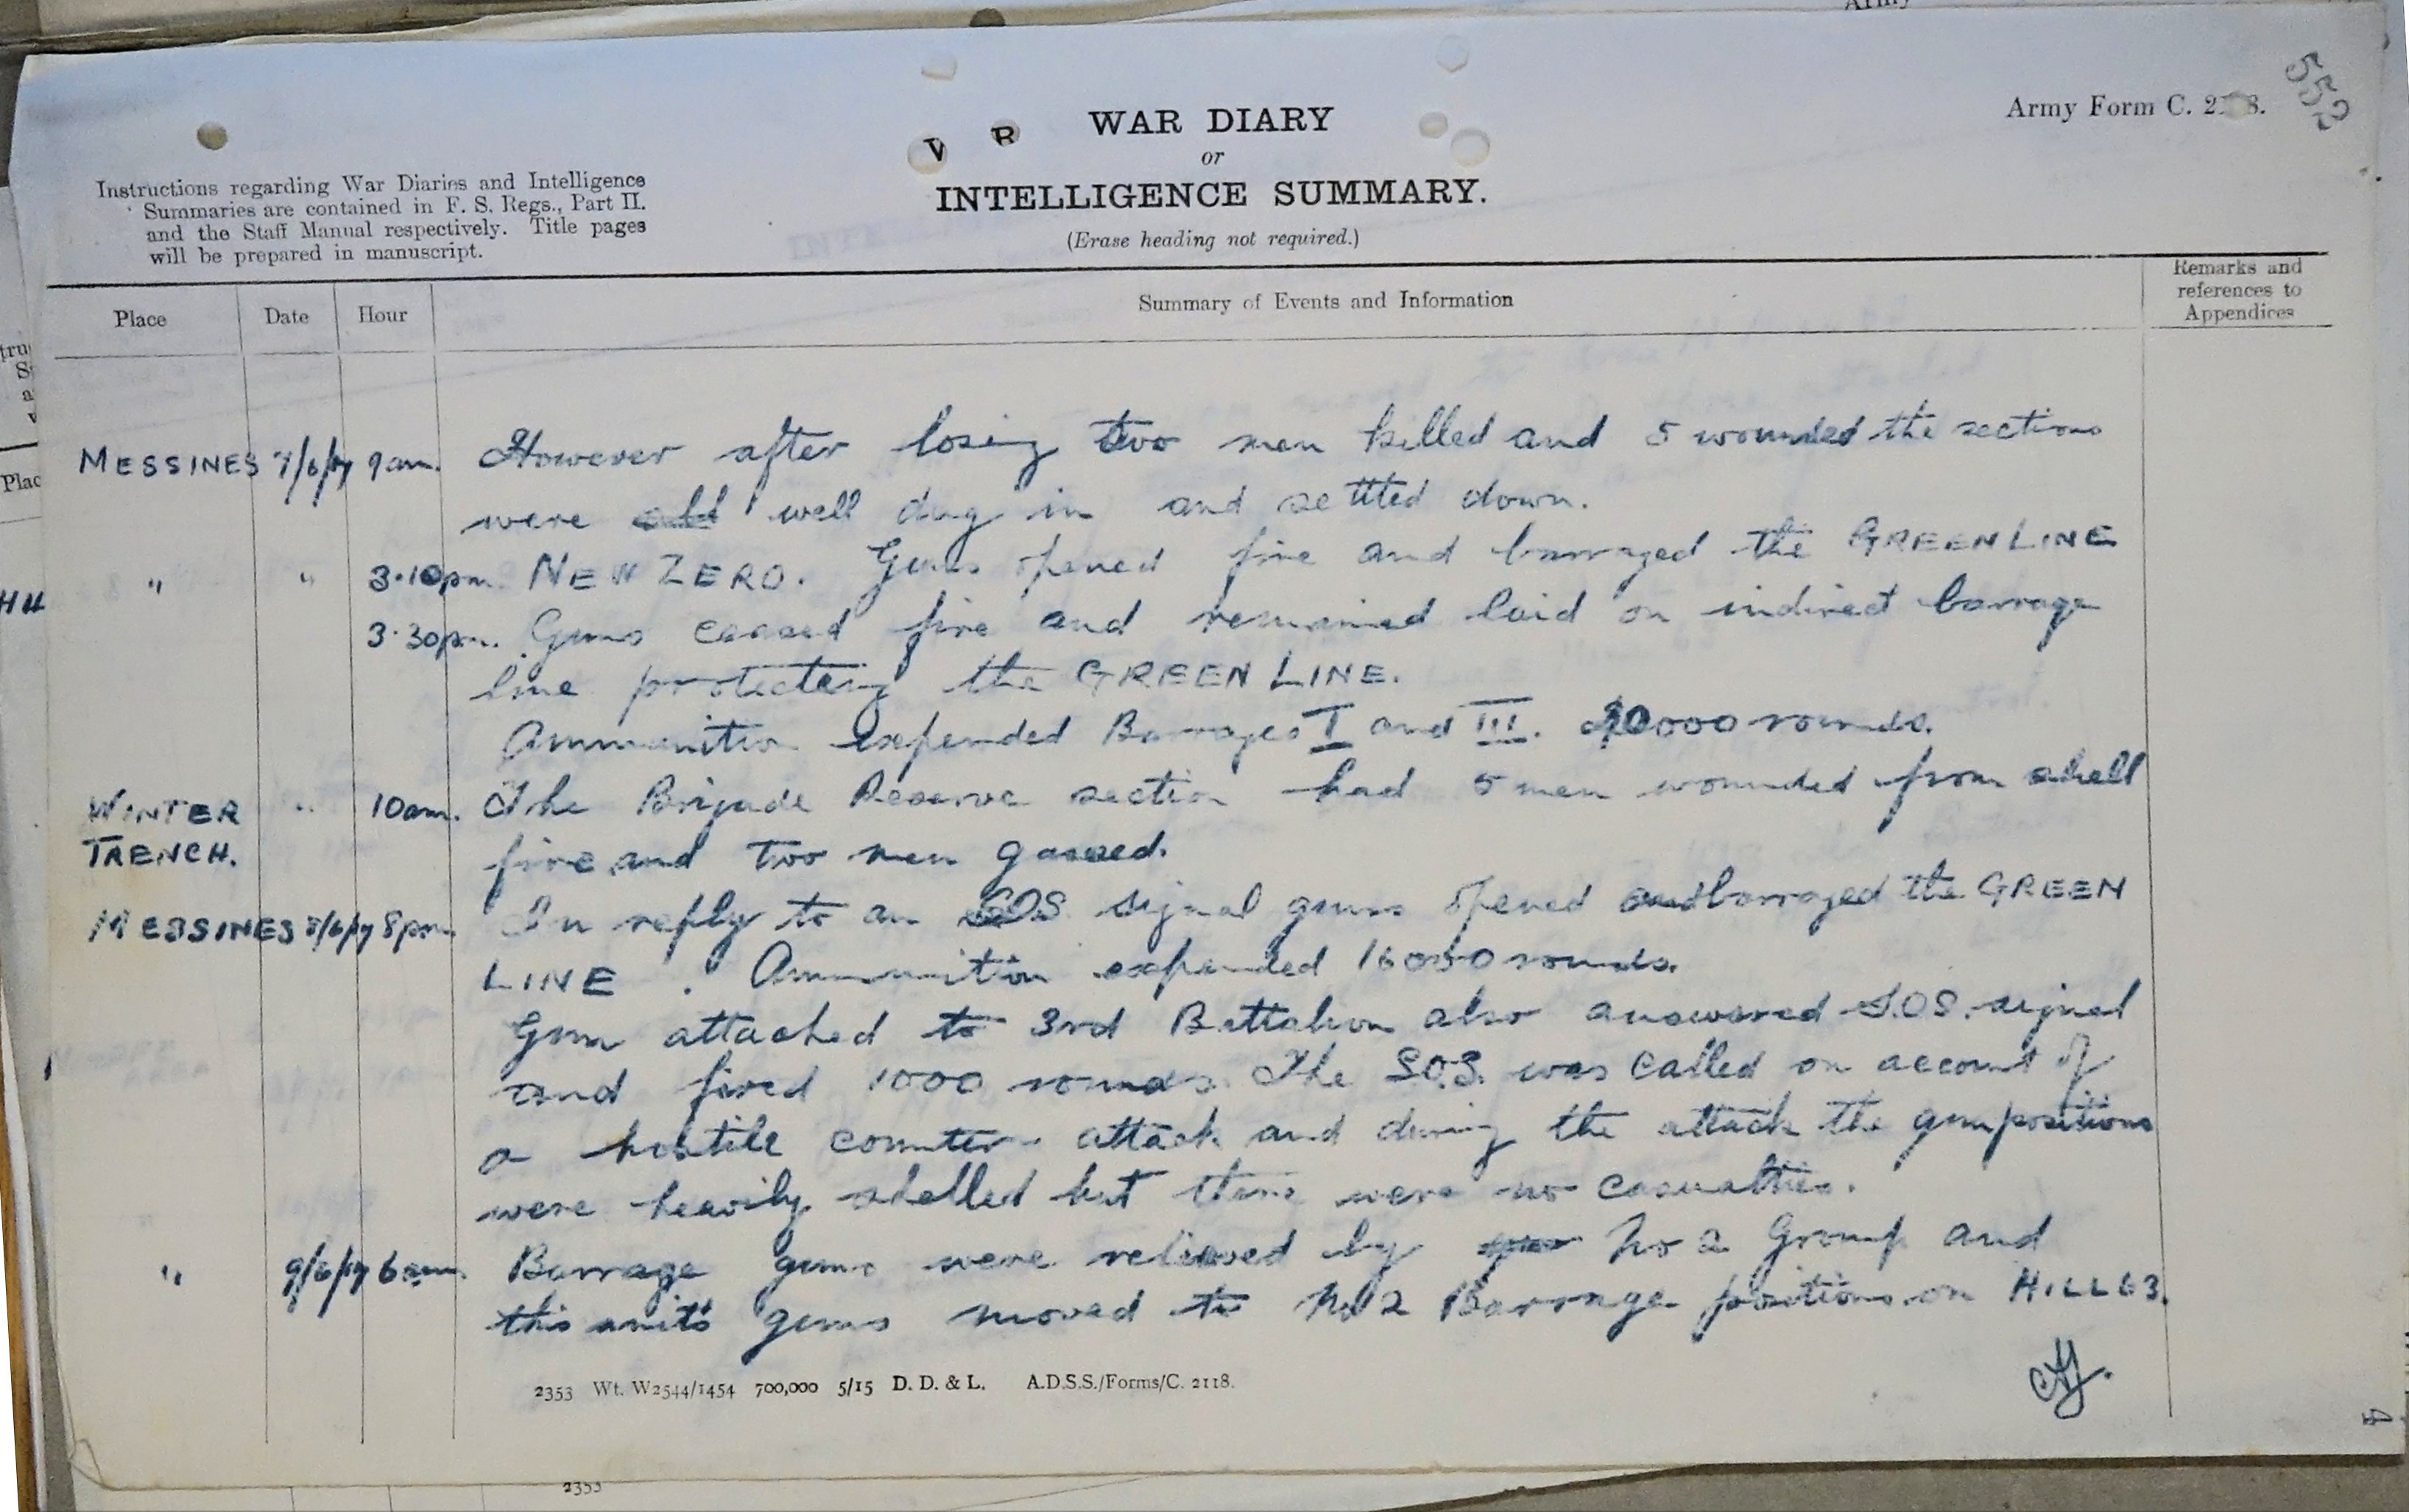 Army
552
Army Form C. 2118.
WAR DIARY
or
INTELLIGENCE SUMMARY.
(Erase heading not required.)
Instructions regarding War Diaries and Intelligence
Summaries are contained in F. S. Regs., Part II.
and the Staff Manual respectively. Title pages
will be prepared in manuscript.
Place Date Hour Summary of Events and Information Remarks and
references to
Appendices
MESSINES 7/6/17 9am. However after losing two men killed and 5 wounded the sections
were all well dug in and settled down.
" " 3.10pm. NEW ZERO. Guns opened fire and barraged the GREEN LINE
3.30pm. Guns ceased fire and remained laid on indirect barrage
line protecting the GREEN LINE.
Ammunition expended Barrages I and III. rounds.
WINTER " 10am. The Brigade Reserve section had 5 men wounded from shell
TRENCH. fire and two men gassed.
MESSINES 8/6/17 8pm. In reply to an SOS signal guns opened and barraged the GREEN
LINE. Ammunition expended rounds.
Gun attached to 3rd Battalion also answered S.O.S. signal
and fired 1000 rounds. The S.O.S. was called on account of
a hostile counter-attack and during the attack the gun positions
were heavily shelled but there were no casualties.
" 9/6/17 6am. Barrage guns were relieved by No 2 Group and
this units guns moved to No 2 Barrage positions on HILL 63.
2353 Wt. W2544/1454 700,000 5/15 D. D. & L. A.D.S.S./Forms/C. 2118.
4
2353